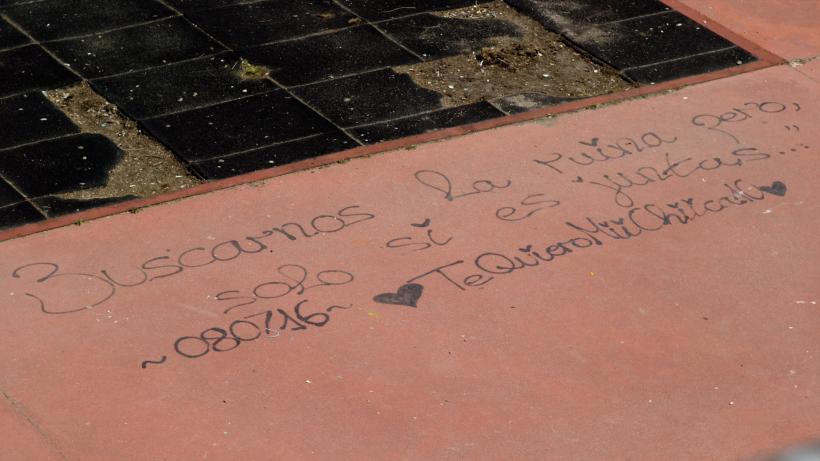 Buscamos la ruina pero,
solo si es juntas...
~080716~ ♥ TeQuieroMiiChiicaH ♥